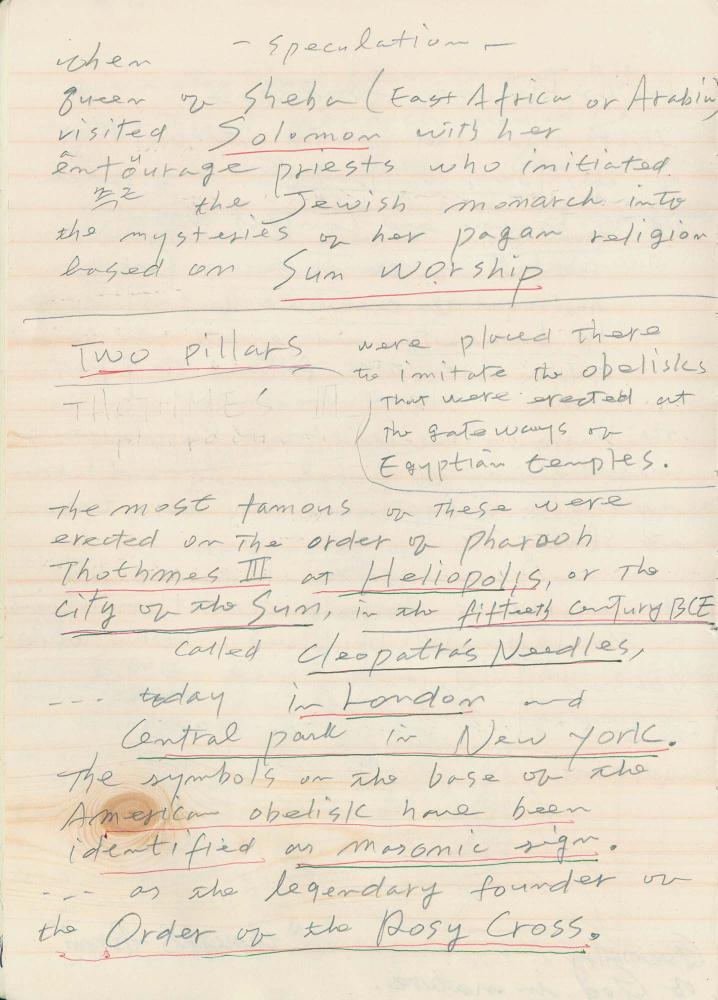 - speculation -
when
queen of Sheba (East Africa or Arabia)
visited Solomon with her
entourage priests who imitiated
the Jewish monarch into
the mysteries of her pagan religion
based on Sun worship
Two pillars
were placed there
to imitate the obelisks
that were erected at
the gateways of
Egyptian temples.
THOTHMES III
The most famous of these were
erected on the order of pharaoh
Thothmes III at Heliopolis, or the
city of the Sun, in the fifteeth century BCE
called Cleopatra's Needles,
--- today in London and
Central park in New York.
The symbols on the base of the
American obelisk have been
identified as masonic sign.
--- as the legendary founder of
the Order of the Rosy Cross.